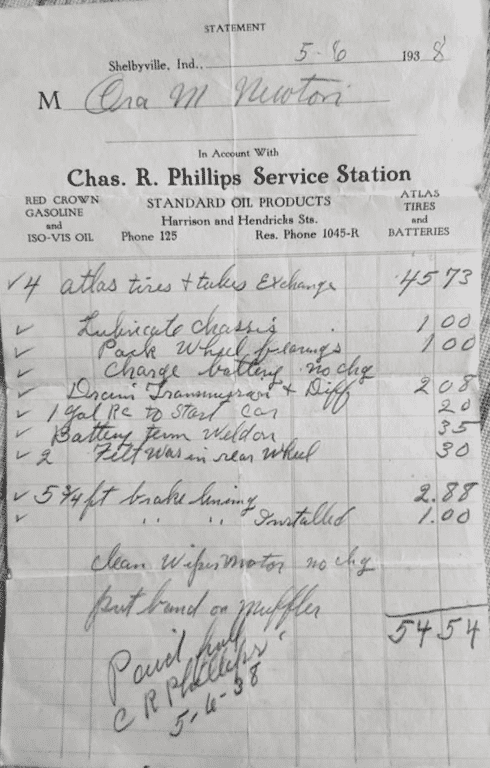 STATEMENT
Shelbyville, Ind., 5-6 1938
M Ora M Newton
In Account With
Chas. R. Phillips Service Station
RED CROWN GASOLINE and ISO-VIS OIL
STANDARD OIL PRODUCTS
Harrison and Hendricks Sts.
Phone 125 Res. Phone 1045-R
ATLAS TIRES and BATTERIES
✓4 atlas tires + tubes Exchange 45 73
✓ Lubricate chassis . 1 00
✓ Pack Wheel bearings 1 00
✓ Charge battery no chg
✓ Drain Transmission & Diff 2 08
✓ 1 gal RC to Start Car 20
✓ Battery term Weldon 35
✓ 2 Felt Was in rear Wheel 30
✓ 5 3/4 ft brake lining 2.88
✓ " " Installed 1.00
clean Wiper motor no chg
put band on muffler
54 54
Paid full
C R Phillips
5-6-38